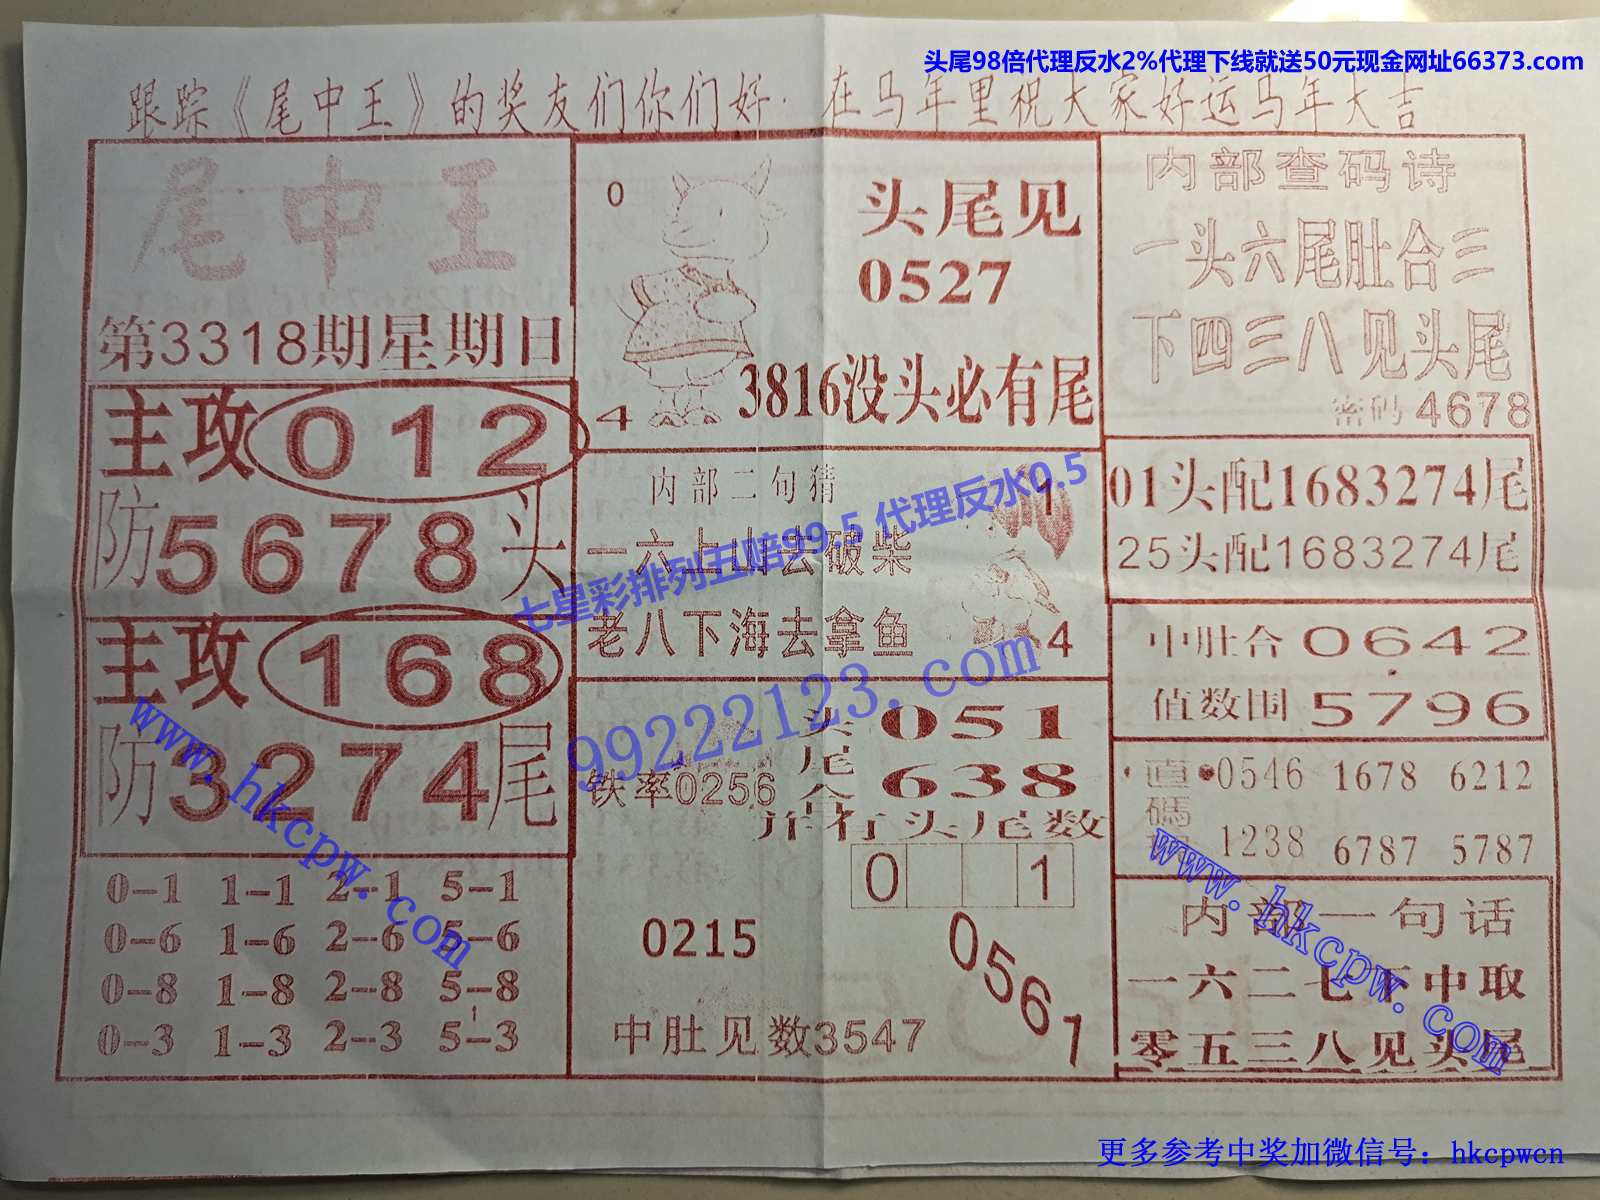 头尾98倍代理反水2%代理下线就送50元现金网址66373.com
跟踪《尾中王》的奖友们你们好.在马年里祝大家好运马年大吉
尾中王
第3318期星期日
主攻012
防5678头
主攻168
防3274尾
0--1 1--1 2--1 5--1
0--6 1--6 2--6 5--6
0--8 1--8 2--8 5--8
0--3 1--3 2--3 5--3
0
头尾见
0527
3816没头必有尾
4
内部二句猜
1
一六上山去破柴
老八下海去拿鱼
4
七星彩排列五赔99.5 代理反水0.5
99222123.com
头尾合
051
638
铁率0256
并有头尾数
0 1
0215
0561
中肚见数3547
内部查码诗
一头六尾肚合三
下四三八见头尾
密码4678
01头配1683274尾
25头配1683274尾
中肚合0642
值数围5796
直碼
0546 1678 6212
1238 6787 5787
内部一句话
一六二七下中取
零五三八见头尾
www.hkcpw.com
www.hkcpw.com
更多参考中奖加微信号：hkcpwcn